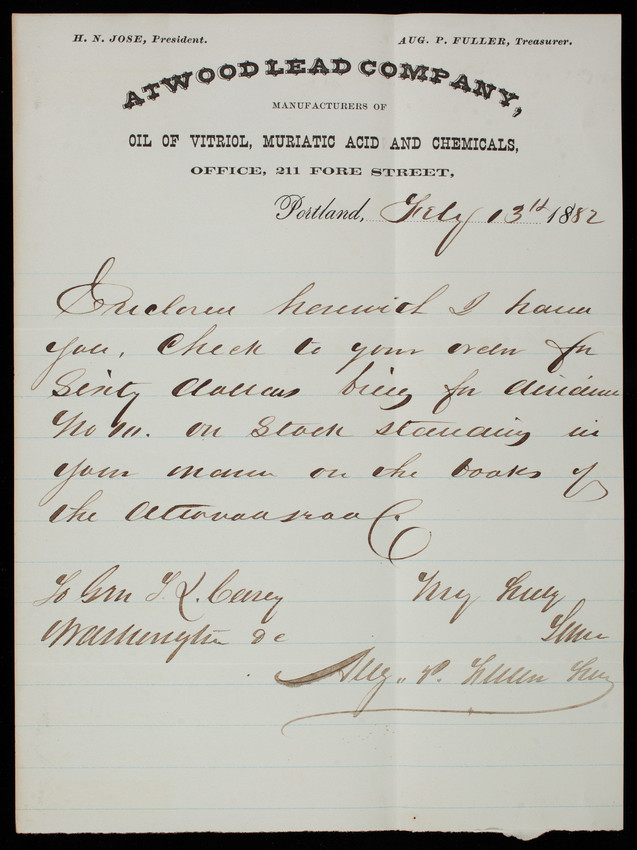 H. N. JOSE, President. AUG. P. FULLER, Treasurer.
ATWOOD LEAD COMPANY,
MANUFACTURERS OF
OIL OF VITRIOL, MURIATIC ACID AND CHEMICALS,
OFFICE, 211 FORE STREET,
Portland, Feby 13th 1882
Enclosed herewith I hand
you, Check to your order for
Sixty dollars being for dividend
No 10. on Stock standing in
your name on the books of
the Atwood Lead Co.
To Gen T. L. Casey Very truly
Washington DC Yours
Aug. P. Fuller Treas